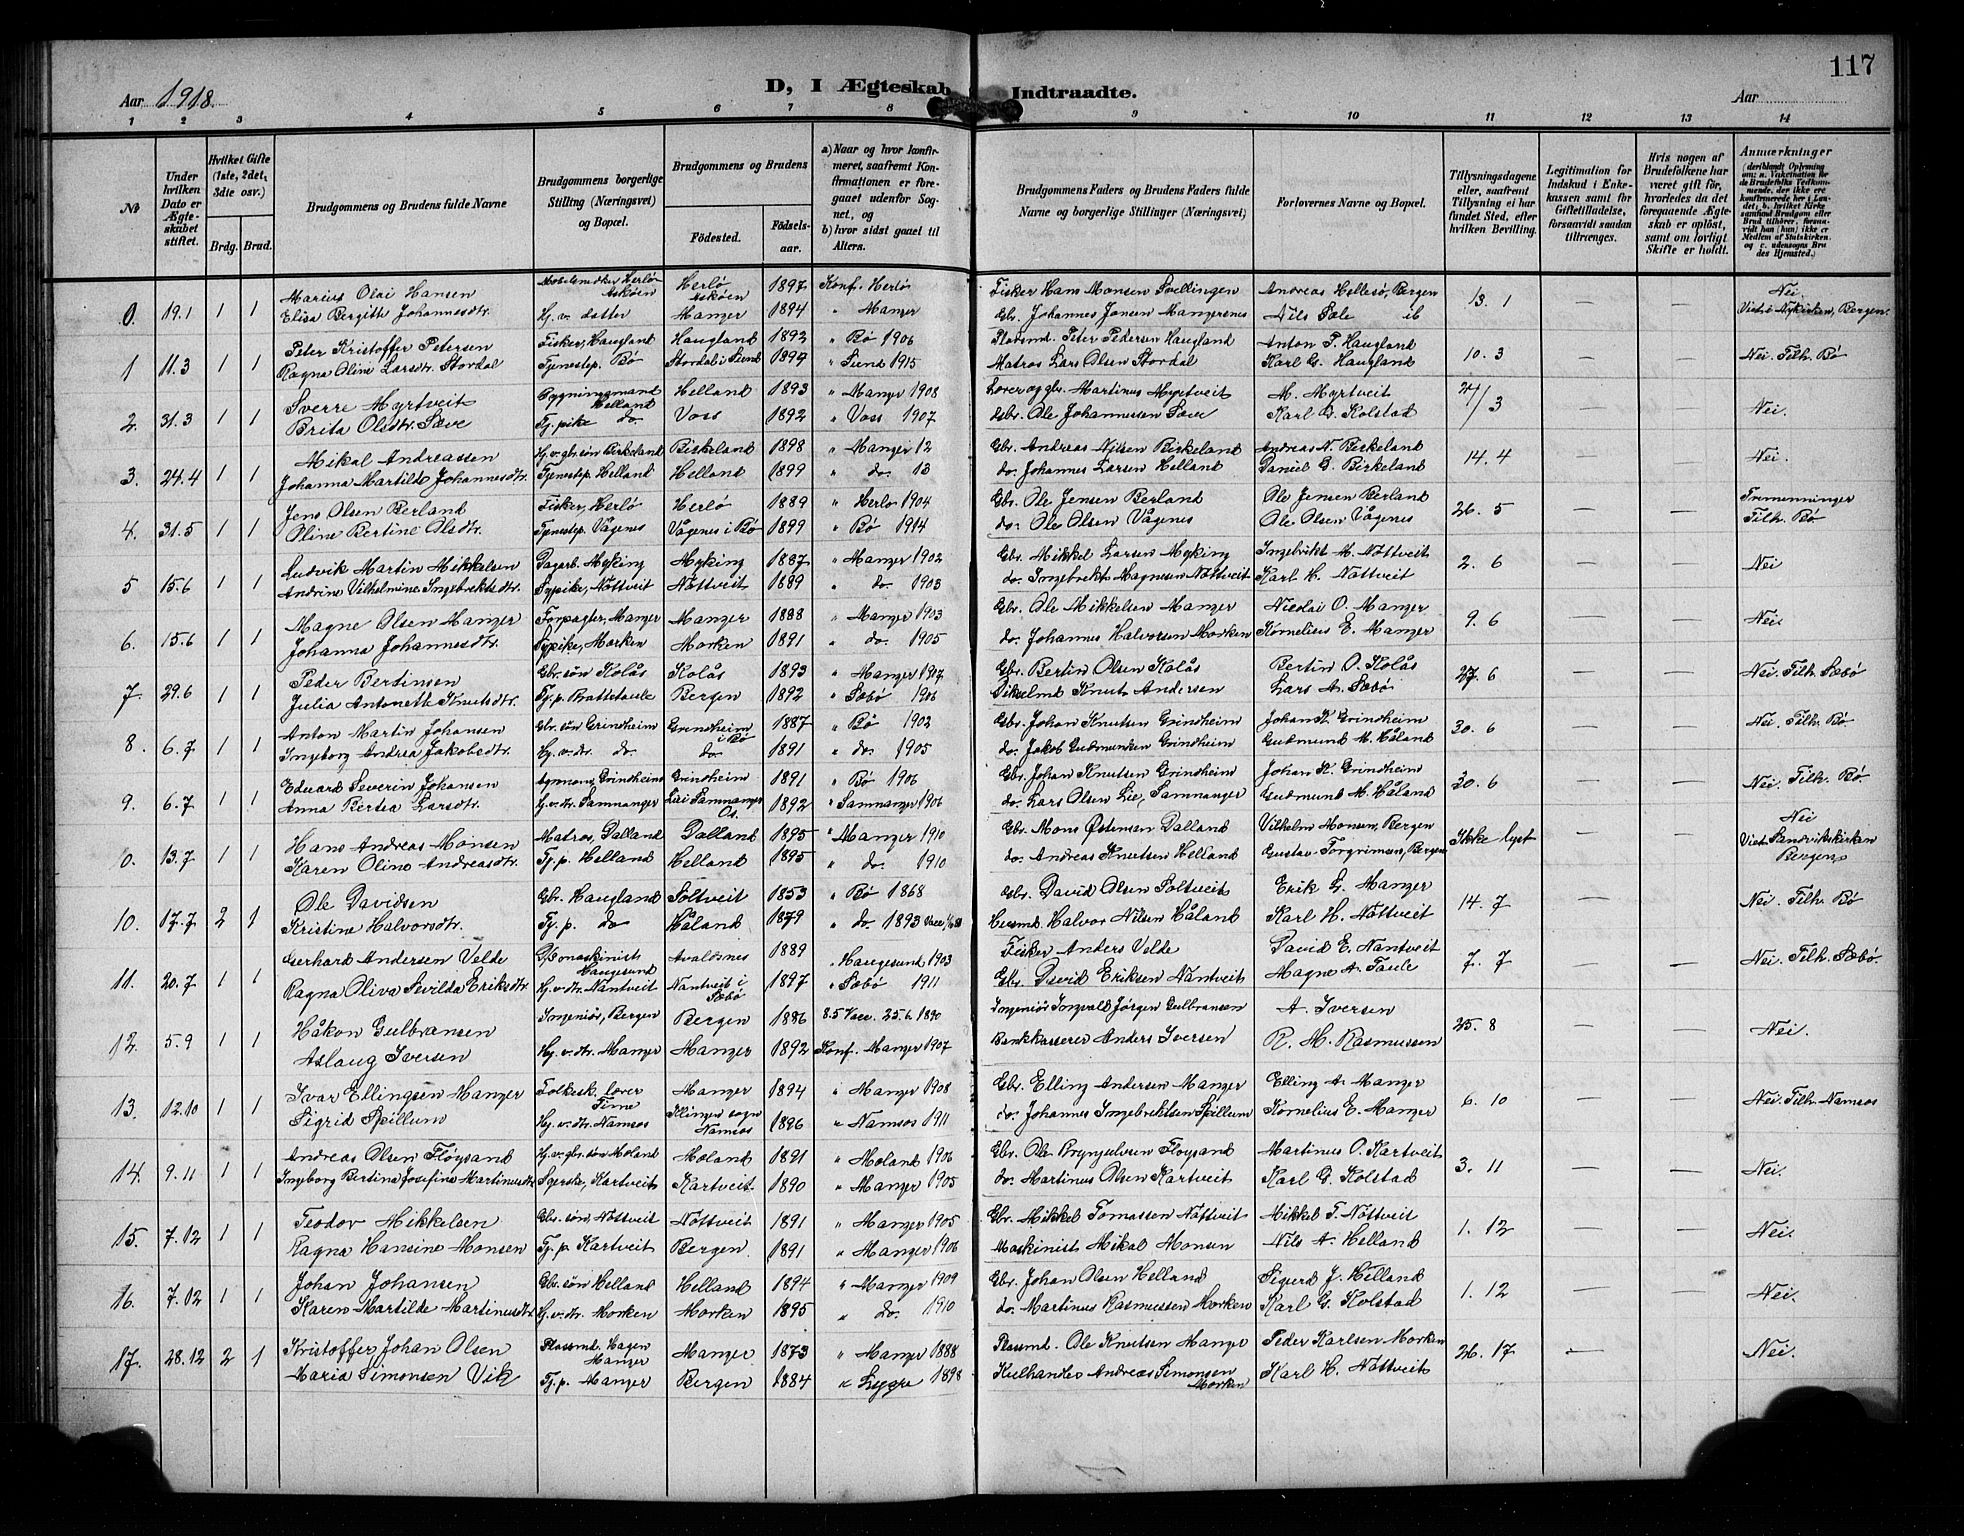 117
Aar 1918.
D, I Ægteskab Indtraadte.
Aar
1 2 3 4 5 6 7 8 9 10 11 12 13 14
No
Under hvilken Dato er Ægteskabet stiftet.
Hvilket Gifte (1ste, 2det, 3die osv.)
Brdg. Brud.
Brudgommens og Brudens fulde Navne
Brudgommens borgerlige Stilling (Næringsvei) og Bopæl.
Brudgommens og Brudens
Fødested. Fødselsaar.
a) Naar og hvor konfirmeret, saafremt Konfirmationen er foregaaet udenfor Sognet, og
b) hvor sidst gaaet til Alters.
Brudgommens Faders og Brudens Faders fulde Navne og borgerlige Stillinger (Næringsvei)
Forlovernes Navne og Bopæl.
Tillysningsdagene eller, saafremt Tillysning ei har fundet Sted, efter hvilken Bevilling.
Legitimation for Indskud i Enkekassen samt for Giftetilladelse, forsaavidt saadan tiltrænges.
Hvis nogen af Brudefolkene har været gift før, hvorledes da det foregaaende Ægteskab er opløst, samt om lovligt Skifte er holdt.
Anmærkninger
Marius Olai Hansen Herlø Askøen Herlø Askøen 1897 Konf. Herlø Fisker Hans Monsen Svellingen Andreas Hellesø, Bergen Nei
0. 19.1 1 1 Elisa Bergith Johannesdtr. Hj. v. datter Manger 1894 " Manger Gbr. Johannes Jonsen Mangersnes Nils Sæle ib 13. 1 — — Viet i Nykirken, Bergen.
Peter Kristoffer Petersen Fisker, Haugland Haugland 1892 " Bø 1906 Plassmd. Peter Pedersen Haugland Anton P. Haugland
1 11.3 1 1 Ragna Oline Larsdtr. Stordal Tjenestep. Bø Stordal i 1899 " 1915 Matros Lars Olsen Stordal Karl G. Haugland 10. 3 — — Nei. Tilh. Bø
Sverre Myrtveit Helland Helland 1893 " Manger 1908 Lærer og gbr. Martinus Myrtveit M. Myrtveit
2. 31.3 1 1 Brita Olsdtr. Sæve Tj. pike do. Voss 1892 " Voss 1907 Gbr. Ole Johannessen Sæve Karl G. Kolstad /3 — — Nei.
Mikal Andreassen Hj. v. gbr. søn Birkeland Birkeland 1898 " Manger 12 Gbr. Andreas Nilsen Birkeland Andreas N. Birkeland
3. 24.4 1 1 Johanna Martilde Johannesdtr. Tjenestp. Helland Helland 1899 " do. 13 do. Johannes Larsen Helland Daniel G. Birkeland 14. 4 — — Nei.
Jens Olsen Berland Fisker, Herlø Herlø 1889 " Herlø 1904 Gbr. Ole Jensen Berland Ole Jensen Berland Tremenninger
4. 31.5 1 1 Oline Bertine Olsdtr. Tjenestep. Vågenes Vågenes i Bø 1899 " Bø 1914 do. Ole Olsen Vågenes Ole Olsen Vågenes 26. 5 — — Tilh. Bø
Ludvik Martin Mikkelsen Dagarb. Myking Myking 1887 " Manger 1902 Gbr. Mikkel Larsen Myking Ingebrikt M. Nøttveit
5 15.6 1 1 Andrine Vilhelmine Ingebrektsdtr. Sypike, Nøttveit Nøttveit 1889 " do. 1903 do. Ingebrekt Magnesen Nøttveit Karl H. Nøttveit 2. 6 — — Nei
Magne Olsen Manger Forpagter, Manger Manger 1888 " Manger 1903 Gbr. Ole Mikkelsen Manger Nicolai O. Manger
6. 15.6 1 1 Johanna Johannesdtr. Sypike, Morken Morken 1891 " do. 1905 do. Johannes Halvorsen Morken Kornelius E. Manger 9. 6 — — Nei
Peder Bertinsen Gbr. søn Kolås Kolås 1893 " Manger 1907 Gbr. Bertin Olsen Kolås Bertin O. Kolås
7. 29.6 1 1 Julia Antonette Knutsdtr. Tj. p. Brattetaule Bergen 1892 " Sæbø 1906 Knut Andersen Lars A. Sæbø 27. 6 — — Nei. Tilh. Sæbø
Anton Martin Johansen Gbr. søn Grindheim Grindheim i Bø 1887 " Bø 1902 Gbr. Johan Knutsen Grindheim Johan K. Grindheim
8. 6.7 1 1 Ingeborg Andrea Jakobsdtr. Hj. v. dr. do. do. 1891 " do. 1905 do. Jakob Gudmundsen Grindheim Gudmund M. Håland 30. 6 — — Nei. Tilh. Bø
Edvard Severin Johansen Grindheim Grindheim 1891 " Bø 1906 Gbr. Johan Knutsen Grindheim Johan K. Grindheim
9. 6.7 1 1 Anna Berta Larsdtr. Hj. v. dtr. Samnanger Lie i Samnanger Os. 1892 " Samnanger 1906 do. Lars Olsen Lie, Samnanger Gudmund M. Håland 30. 6 — — Nei. Tilh. Bø
Hans Andreas Monsen Matros, Dalland Dalland 1895 " Manger 1910 Gbr. Mons Østensen Dalland Vilhelm Monsen, Bergen Nei
0. 13.7 1 1 Karen Oline Andreasdtr. Tj. p. Helland Helland 1895 " do. 1910 do. Andreas Knutsen Helland Gustav Torgrimsen, Bergen Ikke lyst — — Viet Sandvikskirken Bergen
Ole Davidsen Gbr. Haugland Soltveit 1853 " Bø 1868 Gbr. David Olsen Soltveit Erik L. Manger
10. 17.7 2 1 Kristine Halvorsdtr. Tj. p. do Håland 1879 " do. 1893 Husmd. Halvor Nilsen Håland Karl H. Nøttveit 14. 7 — — Nei. Tilh. Bø
Gerhard Andersen Velde Haugesund Avaldsnes 1889 " Haugesund 1903 Fisker Anders Velde David E. Nantveit
11. 20.7 1 1 Ragna Oliva Sevilda Eriksdtr. Hj. v. dtr. Nantveit Nantveit i Sæbø 1897 " Sæbø 1911 Gbr. David Eriksen Nantveit Magne A. Taule 7. 7 — — Nei. Tilh. Sæbø
Håkon Gulbransen Ingeniør, Bergen Bergen 1886 8.5 Vacc. 25.6 1890 Ingeniør Ingvald Jørgen Gulbransen A. Iversen
12. 5.9 1 1 Aslaug Iversen Hj. v. dtr. Manger Manger 1892 Konf. Manger 1907 Bankkasserer Anders Iversen R. M. Rasmussen 25. 8 — — Nei.
Ivar Ellingsen Manger Folkesk. lærer Time Manger 1894 " Manger 1908 Gbr. Elling Andersen Manger Elling A. Manger
13. 12.10 1 1 Sigrid Spillum Hj. v. dtr. Namsos Klinger sogn Namsos 1896 " Namsos 1911 do. Johannes Ingebrektsen Spillum Kornelius E. Manger 6. 10 — — Nei. Tilh. Namsos
Andreas Olsen Fløysand Hj. v. gbr. søn Moland Moland 1891 " Moland 1906 Gbr. Ole Brynjulvsen Fløysand Martinus O. Kartveit
14. 9.11 1 1 Ingborg Bertine Josefine Martinusdtr. Syerske, Kartveit Kartveit 1890 " Manger 1905 do. Martinus Olsen Kartveit Karl G. Kolstad 3. 11 — — Nei.
Teodor Mikkelsen Gbr. søn Nøttveit Nøttveit 1891 " Manger 1905 Gbr. Mikkel Tomassen Nøttveit Mikkel T. Nøttveit
15. 7.12 1 1 Ragna Hansine Monsen Tj. p. Kartveit Bergen. 1891 " Manger 1906 Maskinist Mikal Monsen Nils A. Helland 1. 12 — — Nei.
Johan Johansen Gbr. søn Helland Helland 1894 " Manger 1909 Gbr. Johan Olsen Helland Sigurd J. Helland
16. 7.12 1 1 Karen Martilde Martinusdtr. Hj. v. dtr. Morken Morken 1895 " do. 1910 do. Martinus Rasmussen Morken Karl G. Kolstad 1. 12 — — Nei.
Kristoffer Johan Olsen Plassmd. Hagen Manger Manger 1873 " Manger 1888 Plassmd. Ole Knutsen Manger Peder Karlsen Morken
17. 28.12 2 1 Maria Simonsen Vik Tj. p. Manger Bergen 1884 " Lygre 1898 Kulhandler Andreas Simonsen Morken Karl H. Nøttveit 26. 17 — — Nei.